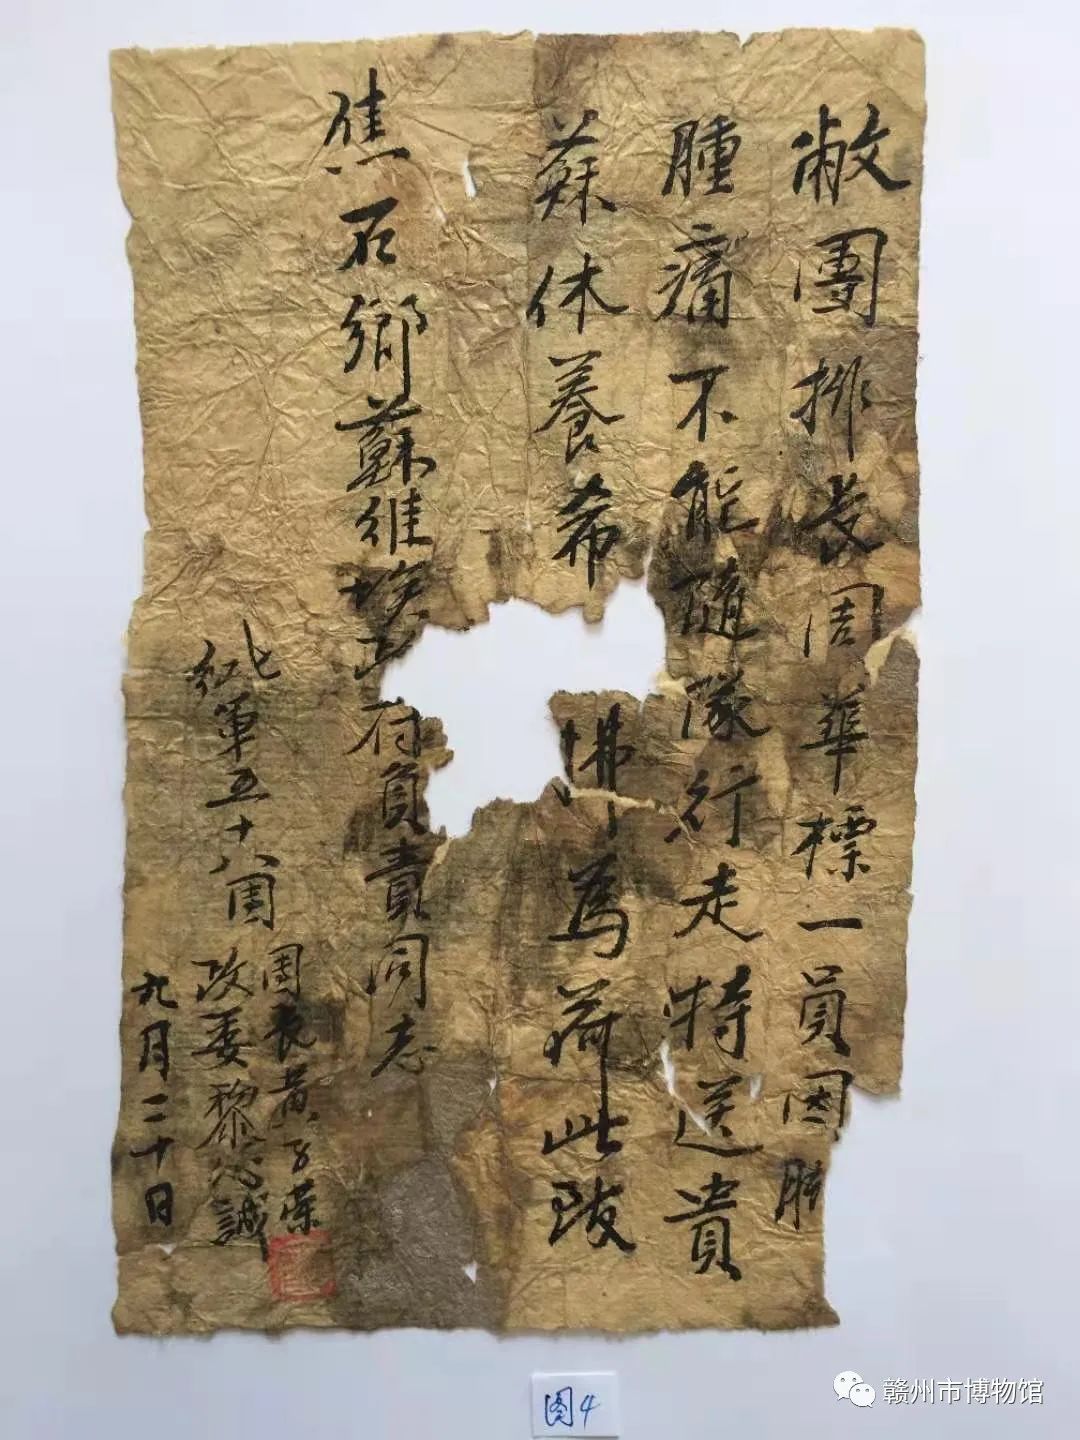 敝團排长周華標一員因肿
腫痛不能隨隊行走特送贵
蘇休養希 沸為荷此致
焦石鄉蘇維埃政府負責同志
红七軍五十八团
团长黄子荣
政委黎心誠
九月二十日
图4
赣州市博物馆